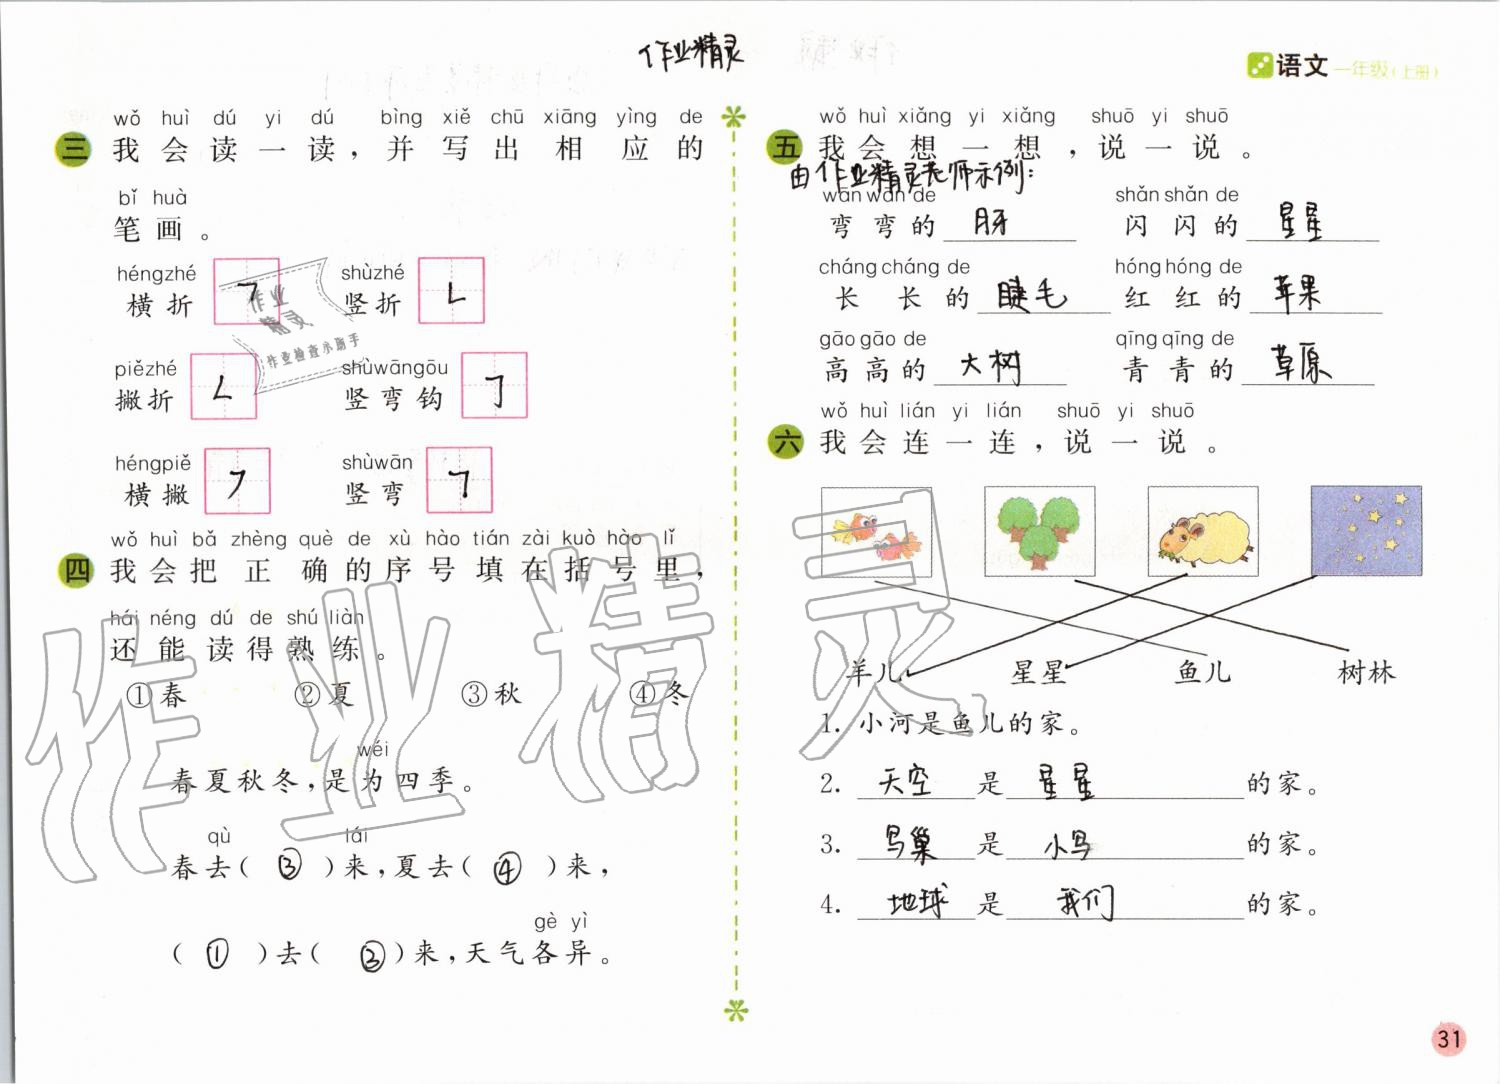 作业精灵
语文 一年级(上册)
wǒ huì dú yi dú bìng xiě chū xiāng yìng de
三 我会读一读,并写出相应的
bǐ huà
笔画。
héngzhé shùzhé
横折 竖折
piězhé shùwāngōu
撇折 竖弯钩
héngpiě shùwān
横撇 竖弯
wǒ huì bǎ zhèng què de xù hào tián zài kuò hào lǐ
四 我会把正确的序号填在括号里,
hái néng dú de shú liàn
还能读得熟练。
①春 ②夏 ③秋 ④冬
wéi
春夏秋冬,是为四季。
qù lái
春去( ③ )来,夏去( ④ )来,
gè yì
( ① )去( ② )来,天气各异。
wǒ huì xiǎng yi xiǎng shuō yi shuō
五 我会想一想,说一说。
由作业精灵老师示例:
wān wān de shǎn shǎn de
弯弯的 月牙 闪闪的 星星
cháng cháng de hóng hóng de
长长的 睫毛 红红的 苹果
gāo gāo de qīng qīng de
高高的 大树 青青的 草原
wǒ huì lián yi lián shuō yi shuō
六 我会连一连,说一说。
羊儿 星星 鱼儿 树林
1. 小河是鱼儿的家。
2. 天空 是 星星 的家。
3. 鸟巢 是 小鸟 的家。
4. 地球 是 我们 的家。
31
作业精灵
作业检查小助手
作业精灵